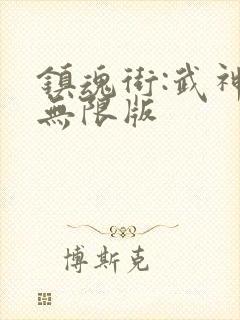 鎮魂街:武神
無限版
博斯克